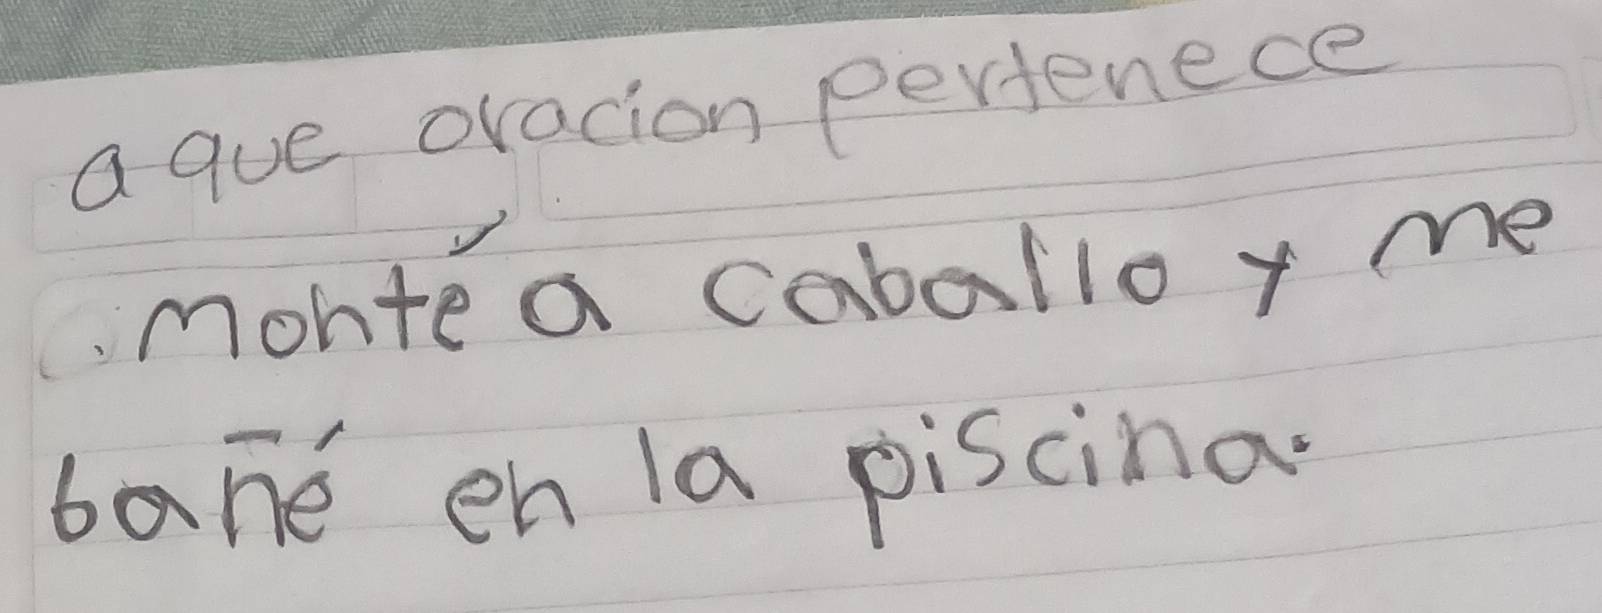 a que oracion pertenece
. Monté a caballo y me
bañé en la piscina.